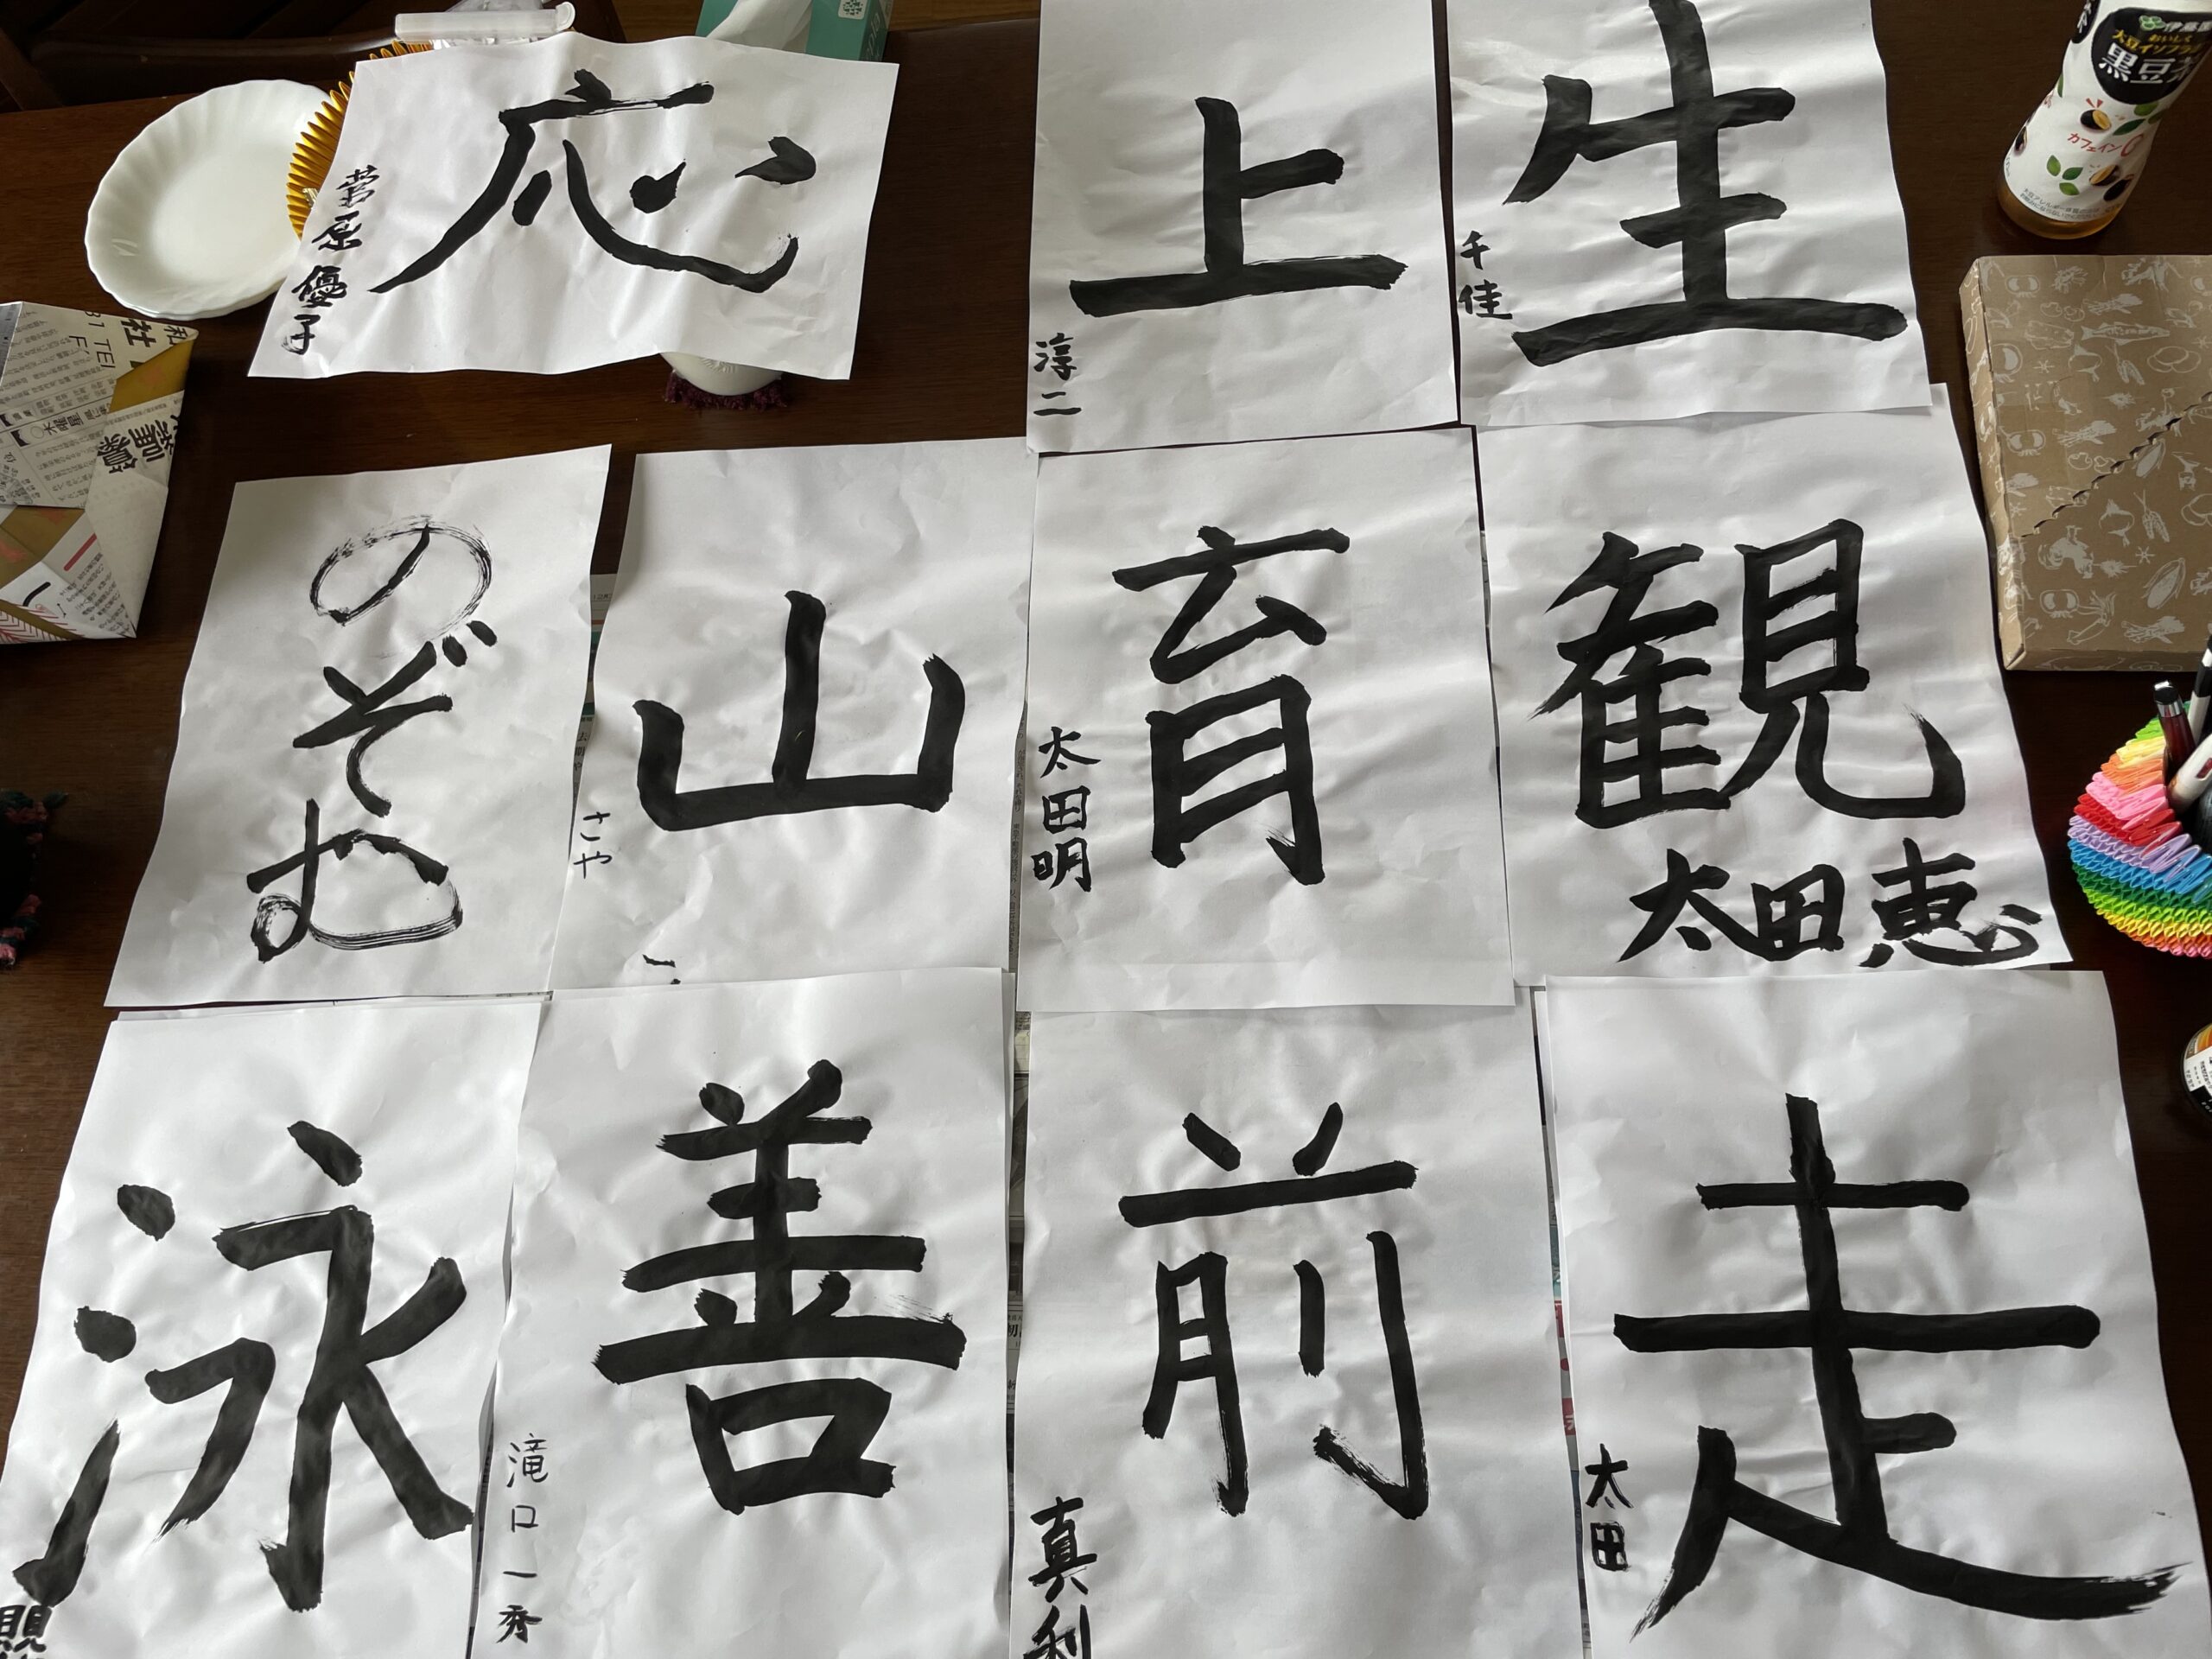 応
菅原優子
上
淳二
生
千佳
伊藤園
おいしく
大豆イソフラ
黒豆茶
カフェイン0
のぞむ
山
さや
育
太田明
観
太田恵
泳
善
滝口一秀
前
真利
走
太田